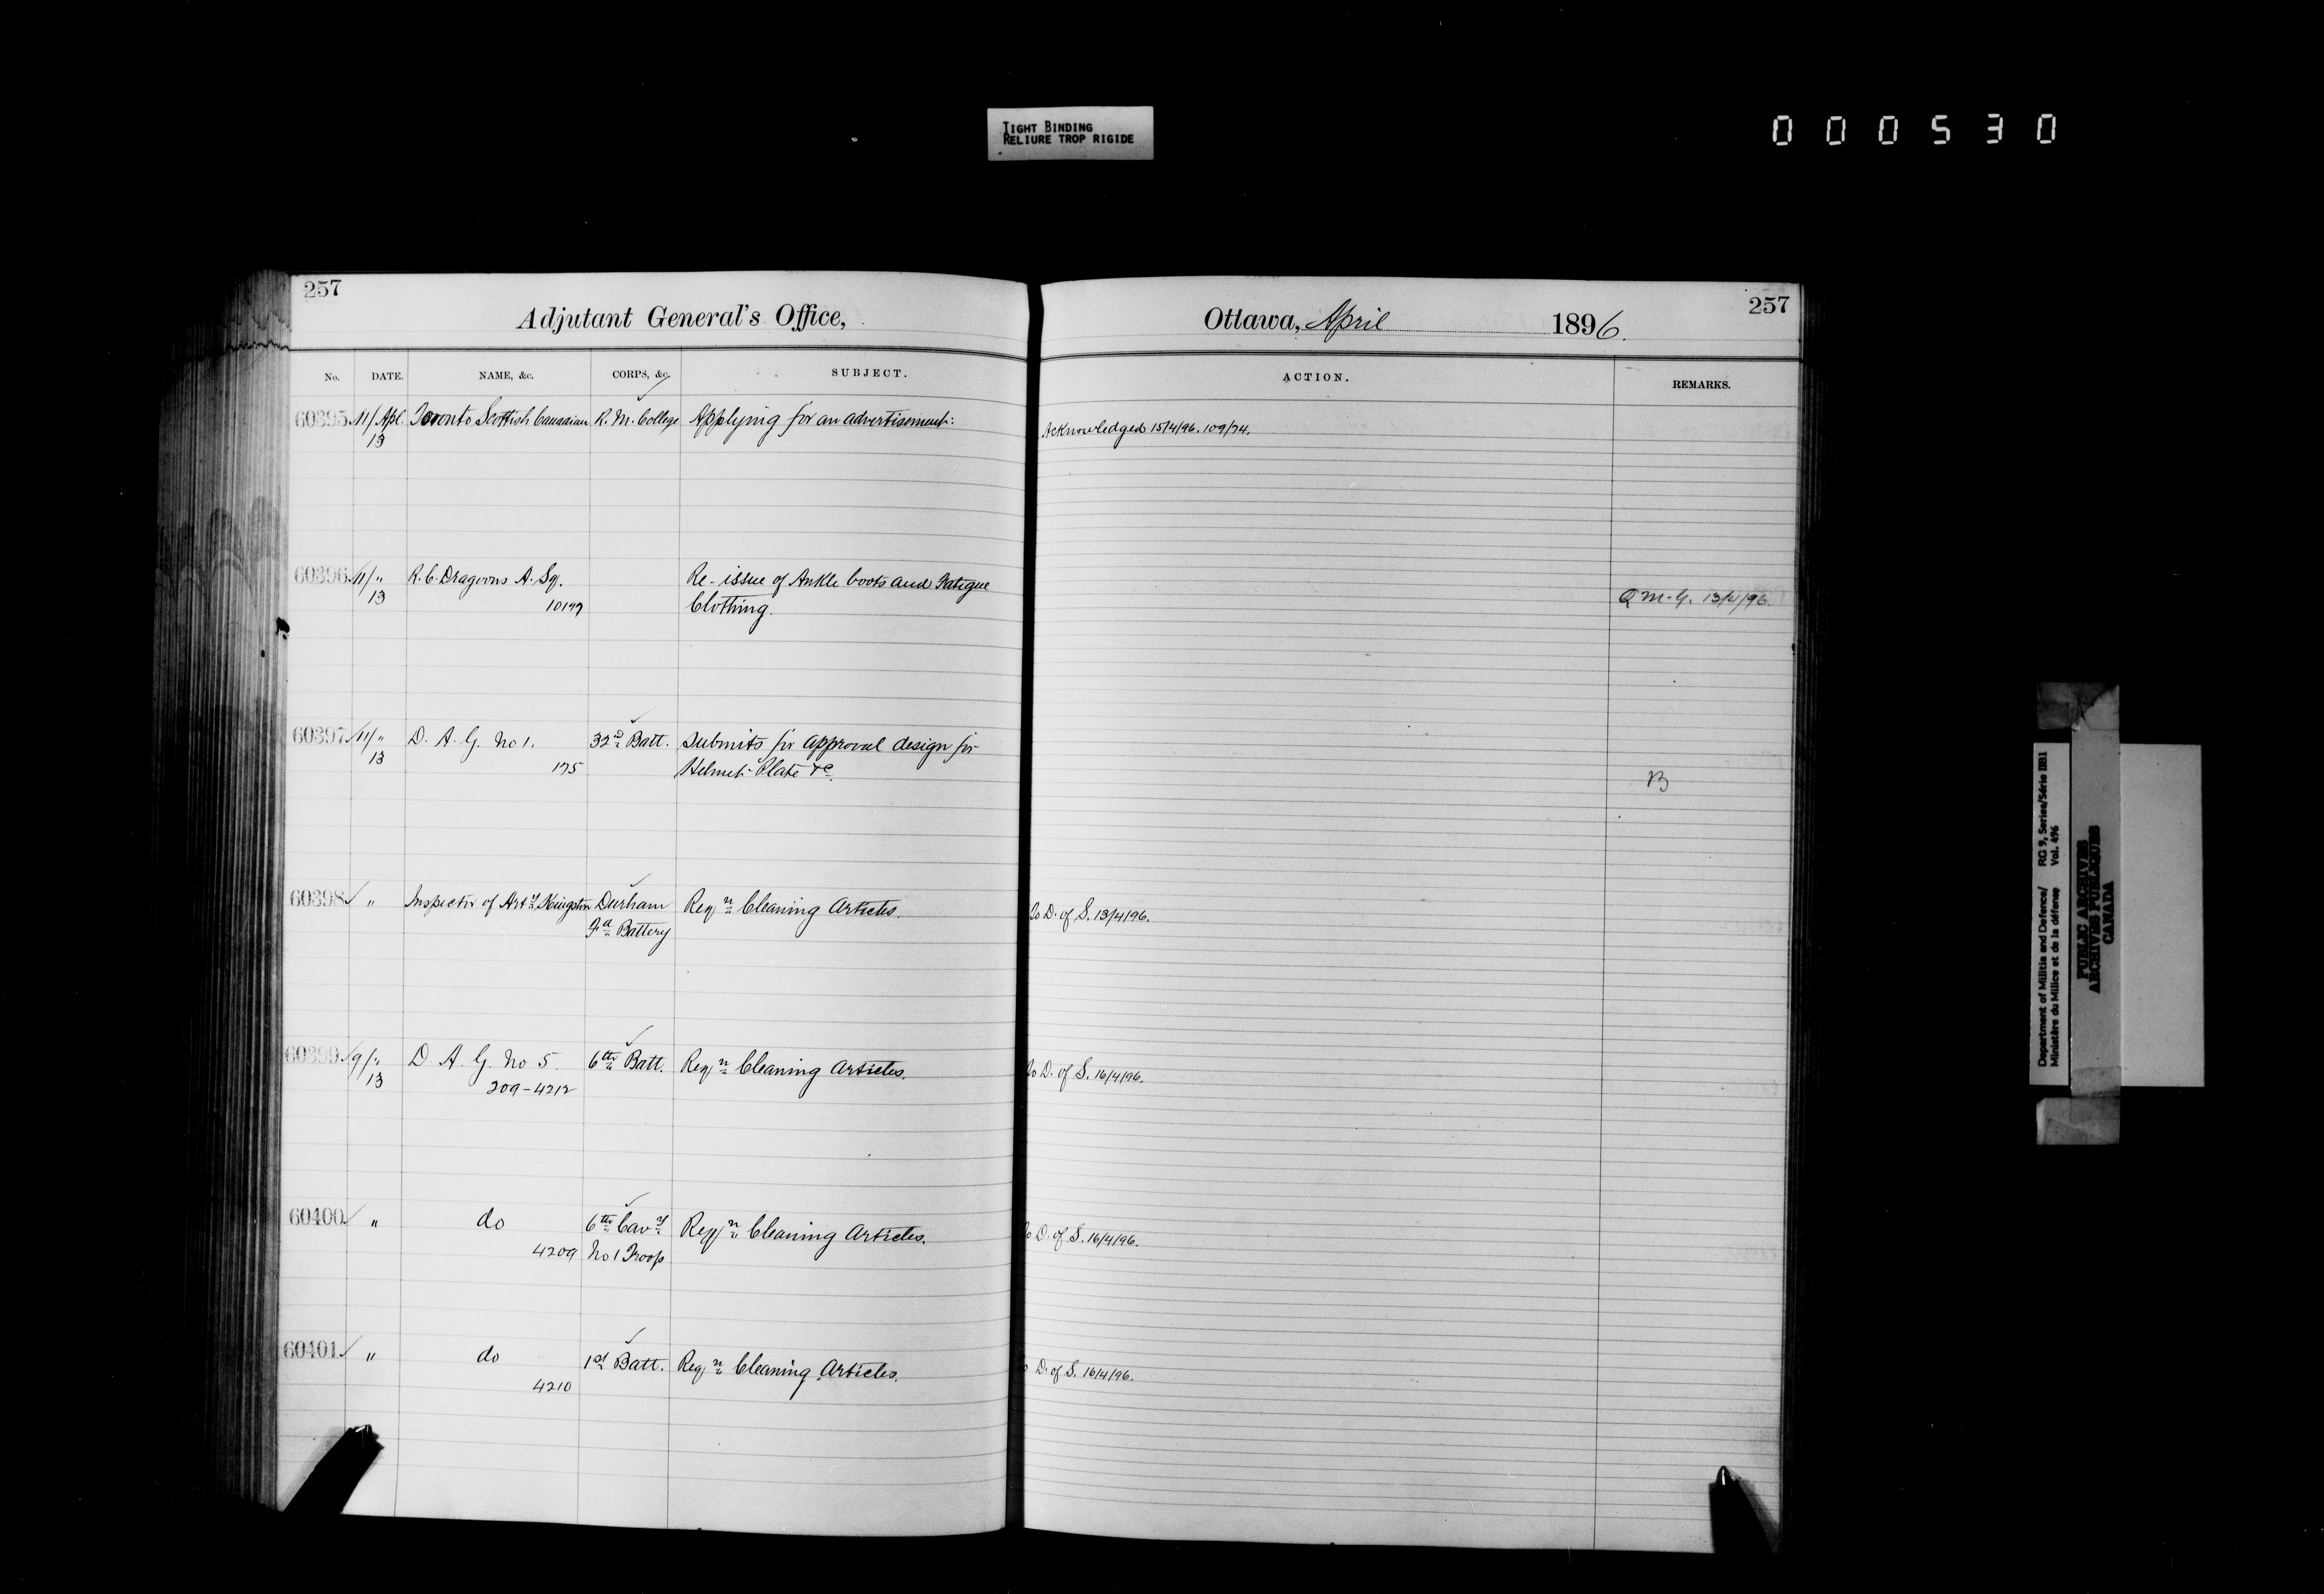 TIGHT BINDING
RELIURE TROP RIGIDE
000530
257
Adjutant General's Office,
Ottawa, April 1896.
257
No. DATE. NAME, &c. CORPS, &c. SUBJECT. ACTION. REMARKS.
60395 11/Apl. Toronto Scottish Canadian R. M. College Applying for an advertisement. Acknowledged 15/4/96. 109/74.
13
60396 11/ " R. C. Dragoons A. Sq. Re-issue of Ankle boots and Fatigue
13 10177 Clothing. Q.M.G. 13/4/96.
60397 11/ " D. A. G. No 1. 32nd Batt. Submits for approval design for
13 175 Helmet Plate &c. B
60398 " Inspector of Arty Kingston Durham Reqn Cleaning Articles. To D. of S. 13/4/96.
Fd Battery
60399 9/ " D. A. G. No 5. 6th Batt. Reqn Cleaning Articles. To D. of S. 16/4/96.
13 209-4212
60400 " do 6th Cavy Reqn Cleaning Articles. To D. of S. 16/4/96.
4209 No 1 Troop
60401 " do 1st Batt. Reqn Cleaning Articles. D. of S. 16/4/96.
4210
Department of Militia and Defence/ RG 9, Series/Série IIB1
Ministère du Milice et de la défense Vol. 496
PUBLIC ARCHIVES
ARCHIVES PUBLIQUES
CANADA